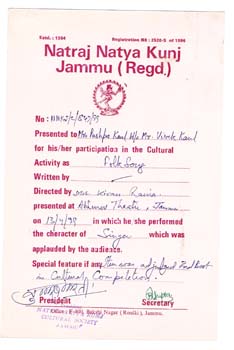 Estd. : 1984 Registration No : 2528-S of 1996
Natraj Natya Kunj
Jammu (Regd.)
No :
Presented to Mrs Pushpa Kaul W/o Mr. Vivek Kaul
for his/her participation in the Cultural
Activity as Folk Song
Written by
Directed by Kiran Raina
presented at Abhinav Theatre, Jammu
on 13/4/99 in which he, she performed
the charecter of Singer which was
applauded by the audience.
Special feature if any Item was adjudged Best
in Cultural Competition
President Secretary
CULTURAL SOCIETY
JAMMU
Nagar Jammu.